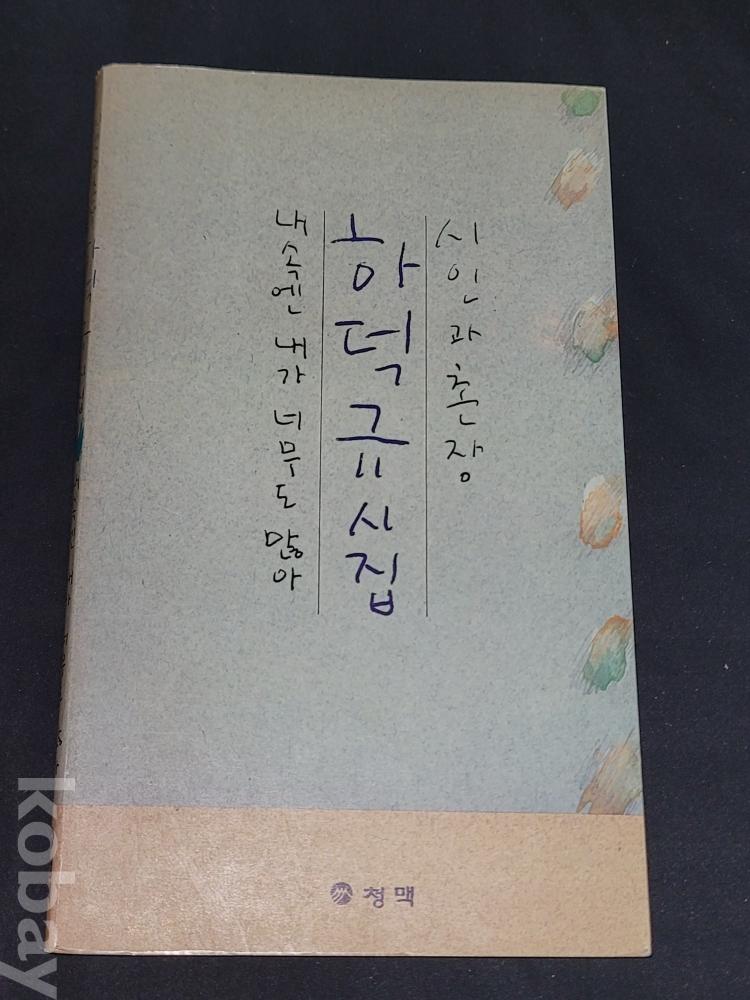 시인과 촌장
하덕규 시집
내 속엔 내가 너무도 많아
청맥
kobay